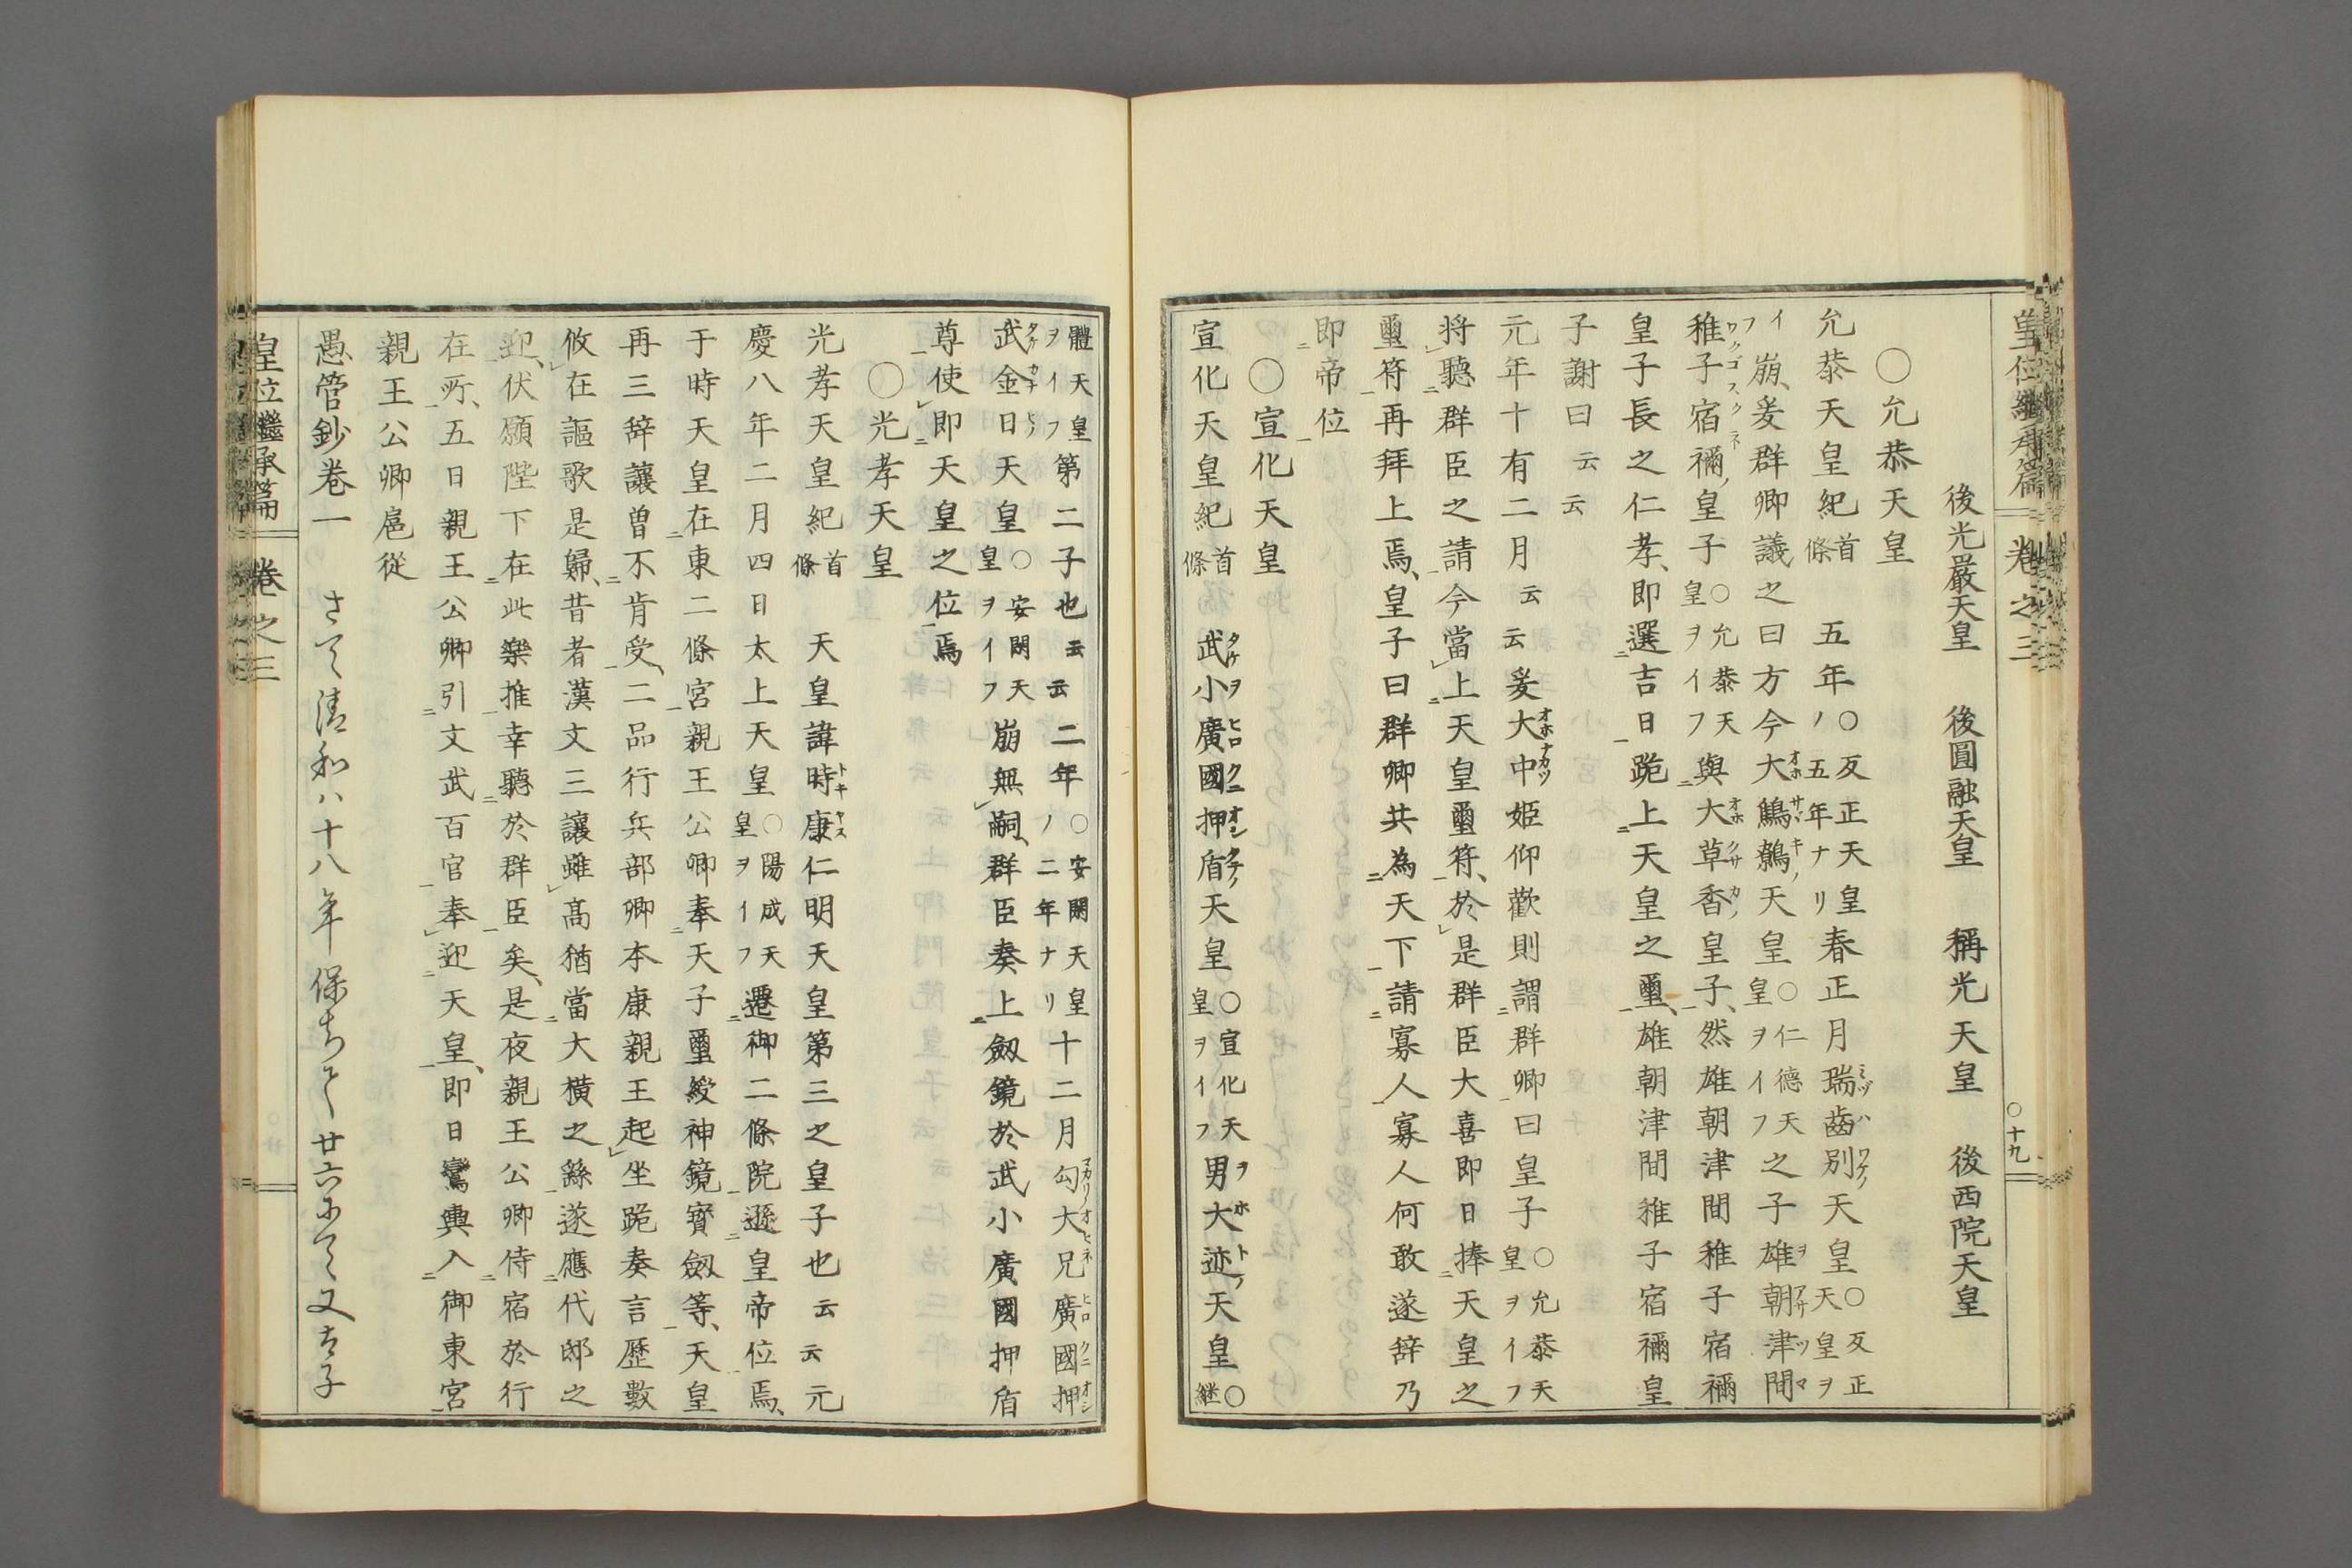 皇位繼承篇 卷之三 ○十九
後光嚴天皇 後圓融天皇 稱光天皇 後西院天皇
○允恭天皇
允恭天皇紀首條 五年○反正天皇ノ五年ナリ春正月瑞齒別天皇○反正天皇ヲ
イフ崩、爰群卿議之曰方今大鷦鷯天皇○仁德天皇ヲイフ之子雄朝津間
稚子宿禰、皇子○允恭天皇ヲイフ與大草香皇子、然雄朝津間稚子宿禰
皇子長之仁孝、即選吉日跪上天皇之璽、雄朝津間稚子宿禰皇
子謝曰云云
元年十有二月云云爰大中姫仰歡則謂群卿曰皇子○允恭天皇ヲイフ
将聽群臣之請今當上天皇璽符、於是群臣大喜即日捧天皇之
璽符再拜上焉、皇子曰群卿共為天下請寡人寡人何敢遂辞乃
即帝位
○宣化天皇
宣化天皇紀首條 武小廣國押盾天皇○宣化天皇ヲイフ男大迹天皇○継
體天皇ヲイフ第二子也云云二年○安閑天皇ノ二年ナリ十二月勾大兄廣國押
武金日天皇○安閑天皇ヲイフ崩無嗣、群臣奏上劔鏡於武小廣國押盾
尊使即天皇之位焉
○光孝天皇
光孝天皇紀首條 天皇諱時康仁明天皇第三之皇子也云云元
慶八年二月四日太上天皇○陽成天皇ヲイフ遷御二條院遜皇帝位焉、
于時天皇在東二條宮親王公卿奉天子璽綬神鏡寳劔等、天皇
再三辞讓曽不肯受、二品行兵部卿本康親王起坐跪奏言歷數
攸在謳歌是歸、昔者漢文三讓雖高猶當大横之繇遂應代邸之
迎、伏願陛下在此樂推幸聽於群臣矣、是夜親王公卿侍宿於行
在所、五日親王公卿引文武百官奉迎天皇、即日鸞輿入御東宮
親王公卿扈從
愚管鈔卷一 さて清和ハ十八年保ちて廿六にて又太子
皇位繼承篇 卷之三